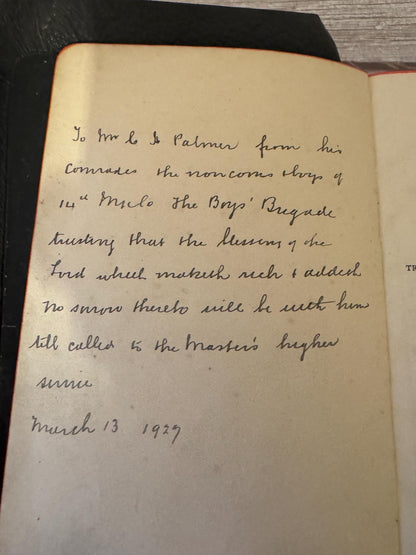 To Mr C H Palmer from his
Comrades the noncoms & boys of
14th The Boys' Brigade
trusting that the blessing of the
Lord which maketh rich & addeth
no sorrow thereto will be with him
till called to the Master's higher
service
March 13 1929
TR